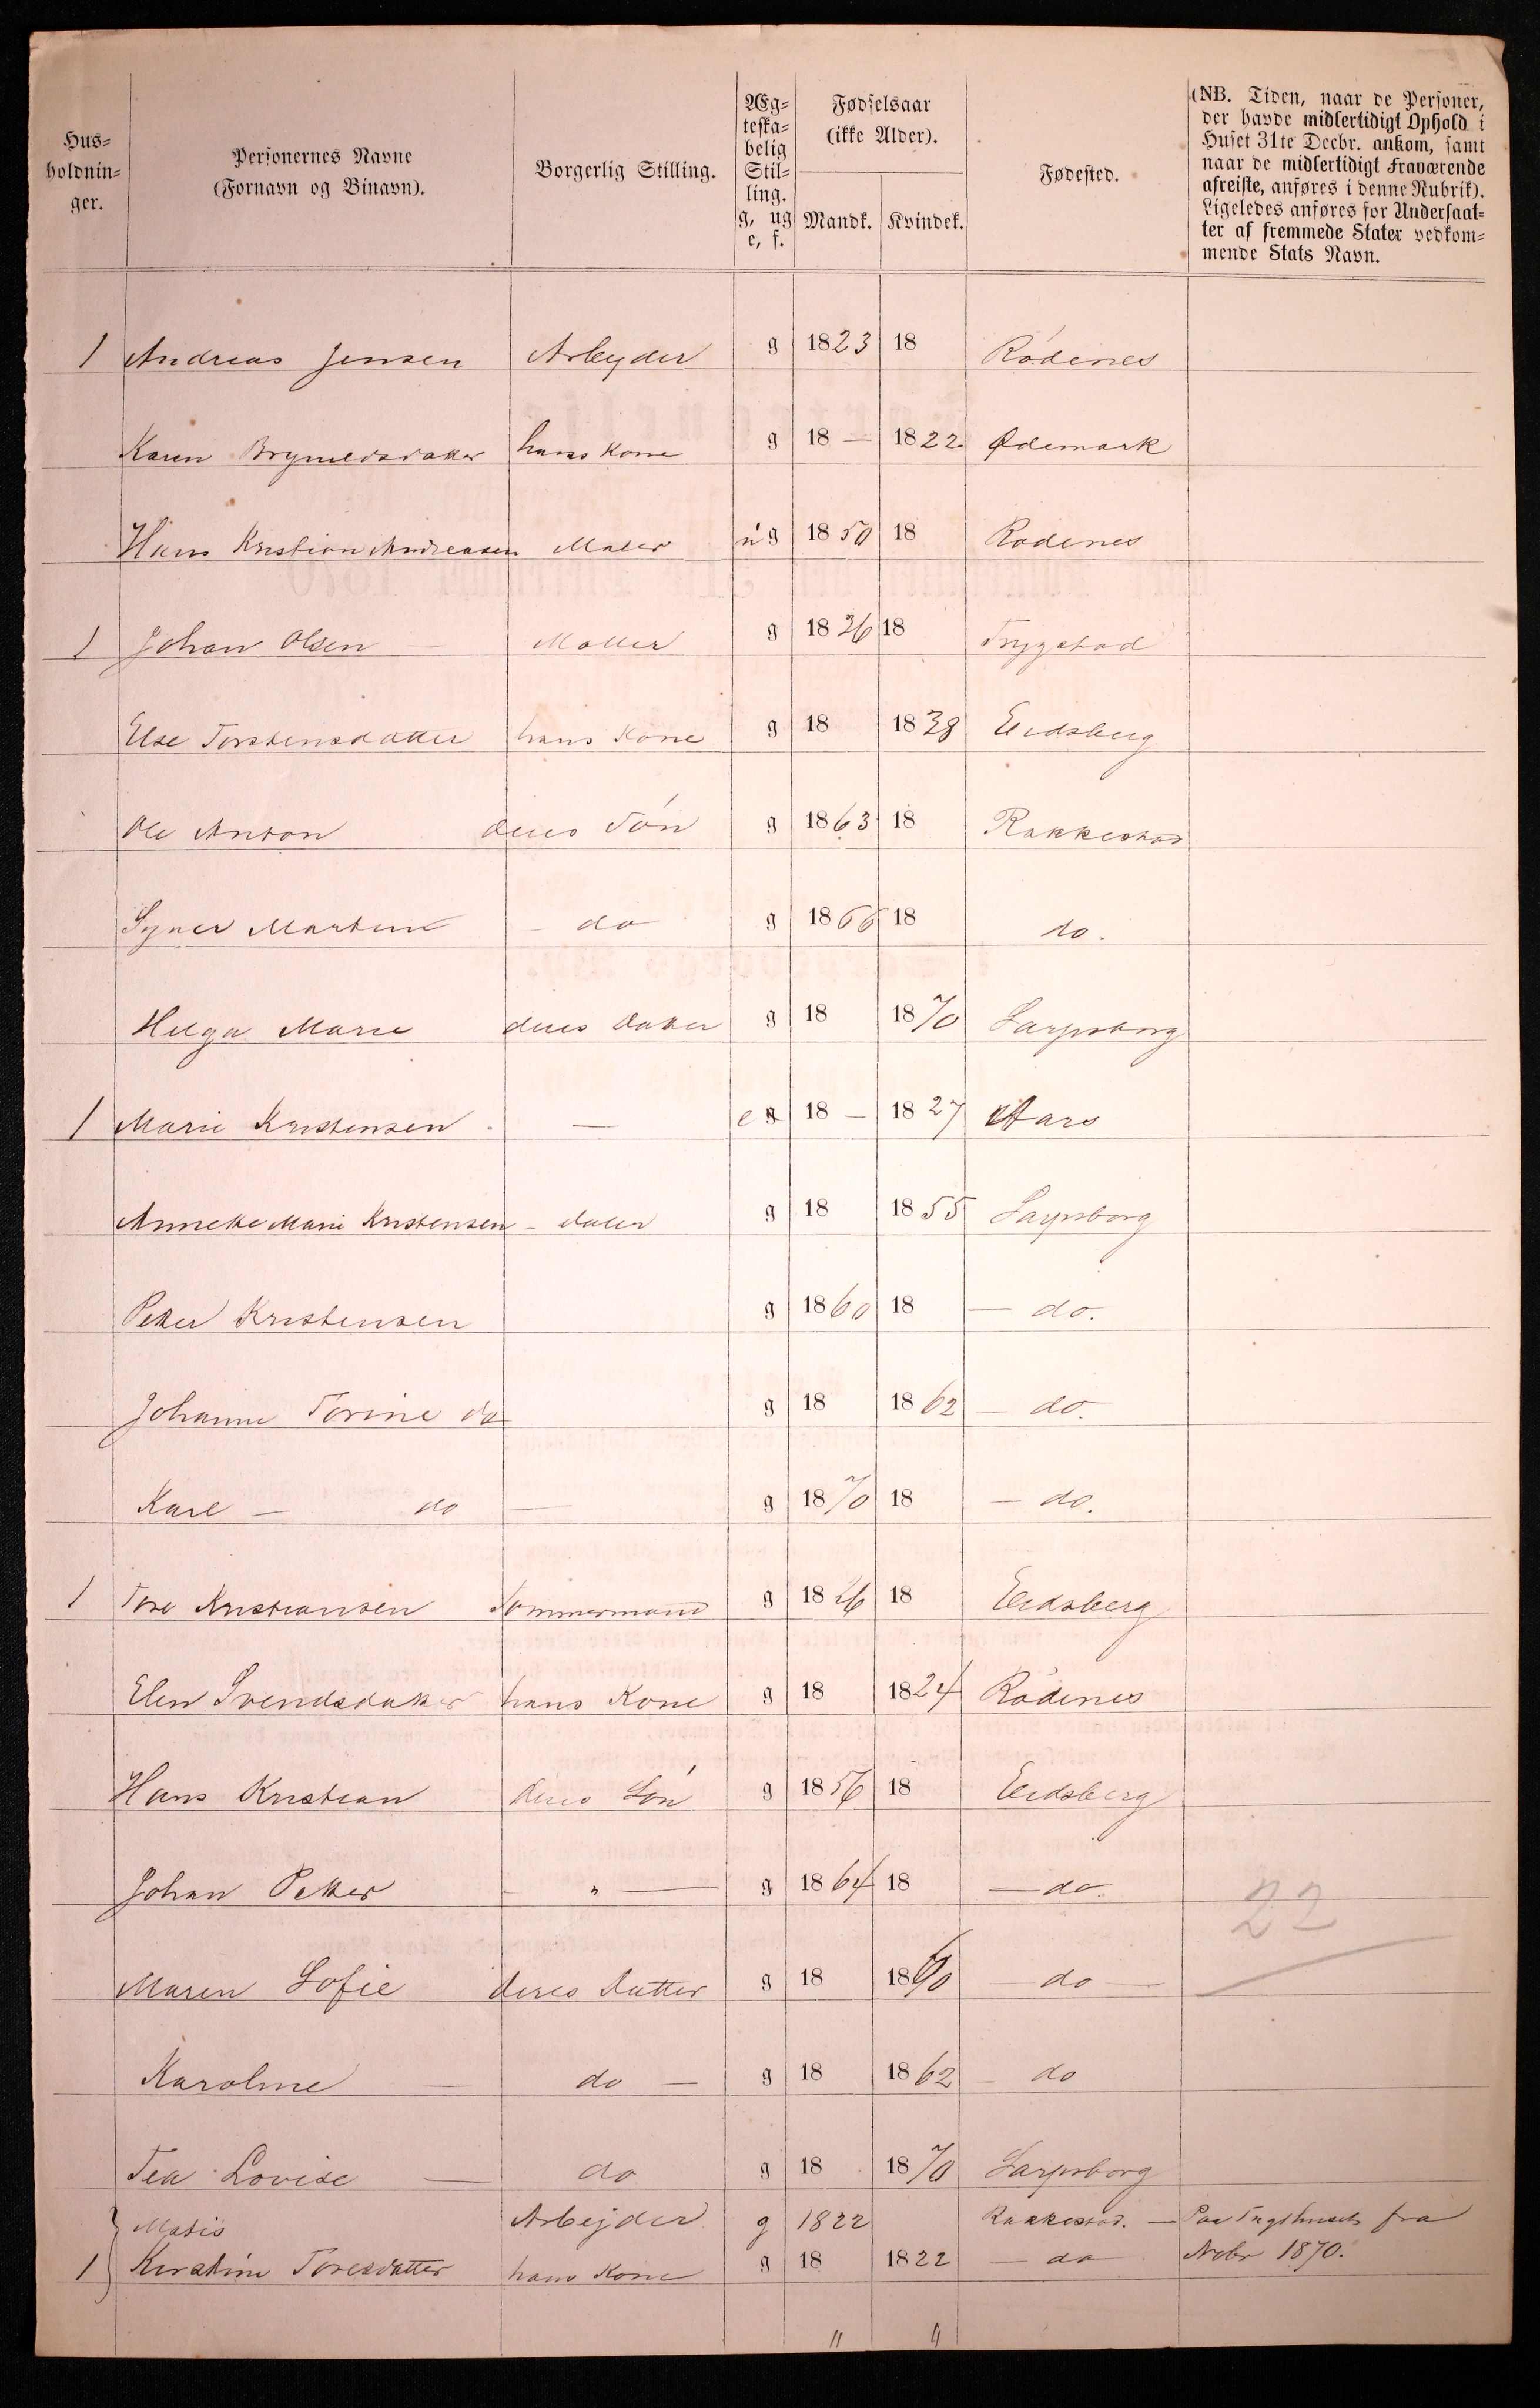 Hus=
holdnin=
ger.
Personernes Navne
(Fornavn og Binavn).
Borgerlig Stilling.
Æg=
teska=
belig
Stil=
ling.
g, ug
e, f.
Fødselsaar
(ikke Alder).
Mandk. Kvindek.
Fødested.
(NB. Tiden, naar de Personer,
der havde midlertidigt Ophold i
Huset 31te Decbr. ankom, samt
naar de midlertidigt fraværende
afreiste, anføres i denne Rubrik).
Ligeledes anføres for Undersaat=
ter af fremmede Stater vedkom=
mende Stats Navn.
1 Andreas Jensen Arbeyder g 1823 18 Rödenes
Karen Brynildsdatter hans Kone g 18 — 1822 Ødemark
Hans Kristian Andreasen Maler ug 1850 18 Rødenes
1 Johan Olsen — Møller g 1826 18 Trygstad
Else Torstensdatter hans Kone g 18 1838 Eidsberg
Ole Anton deres Sön g 1863 18 Rakkestad
Martin do g 1866 18 do.
Helga Marie deres Datter g 18 1870 Sarpsborg
1 Marie Kristensen — e g 18 — 1827 Aars
Annette Marie Kristensen - g 18 1855 Sarpsborg
Petter Kristensen g 1860 18 — do.
Johanne Torine do g 18 1862 — do.
Karl — do — g 1870 18 — do.
1 Tore Kristiansen Tømmermand g 1826 18 Eidsberg
Elen Svendsdatter hans Kone g 18 1824 Rödenes
Hans Kristian deres Sön g 1856 18 Eidsberg
Johan Petter - " — g 1864 18 — do.
22
Maren Sofie deres Datter g 18 18 — do —
Karoline — do — g 18 1862 — do
Tea Lovise — do g 18 1870 Sarpsborg
Matis Arbejder g 1822 Rakkestad. — Paa Tugthuset fra
1 Kirstine Toresdatter hans Kone g 18 1822 — do Nvbr 1870.
" "